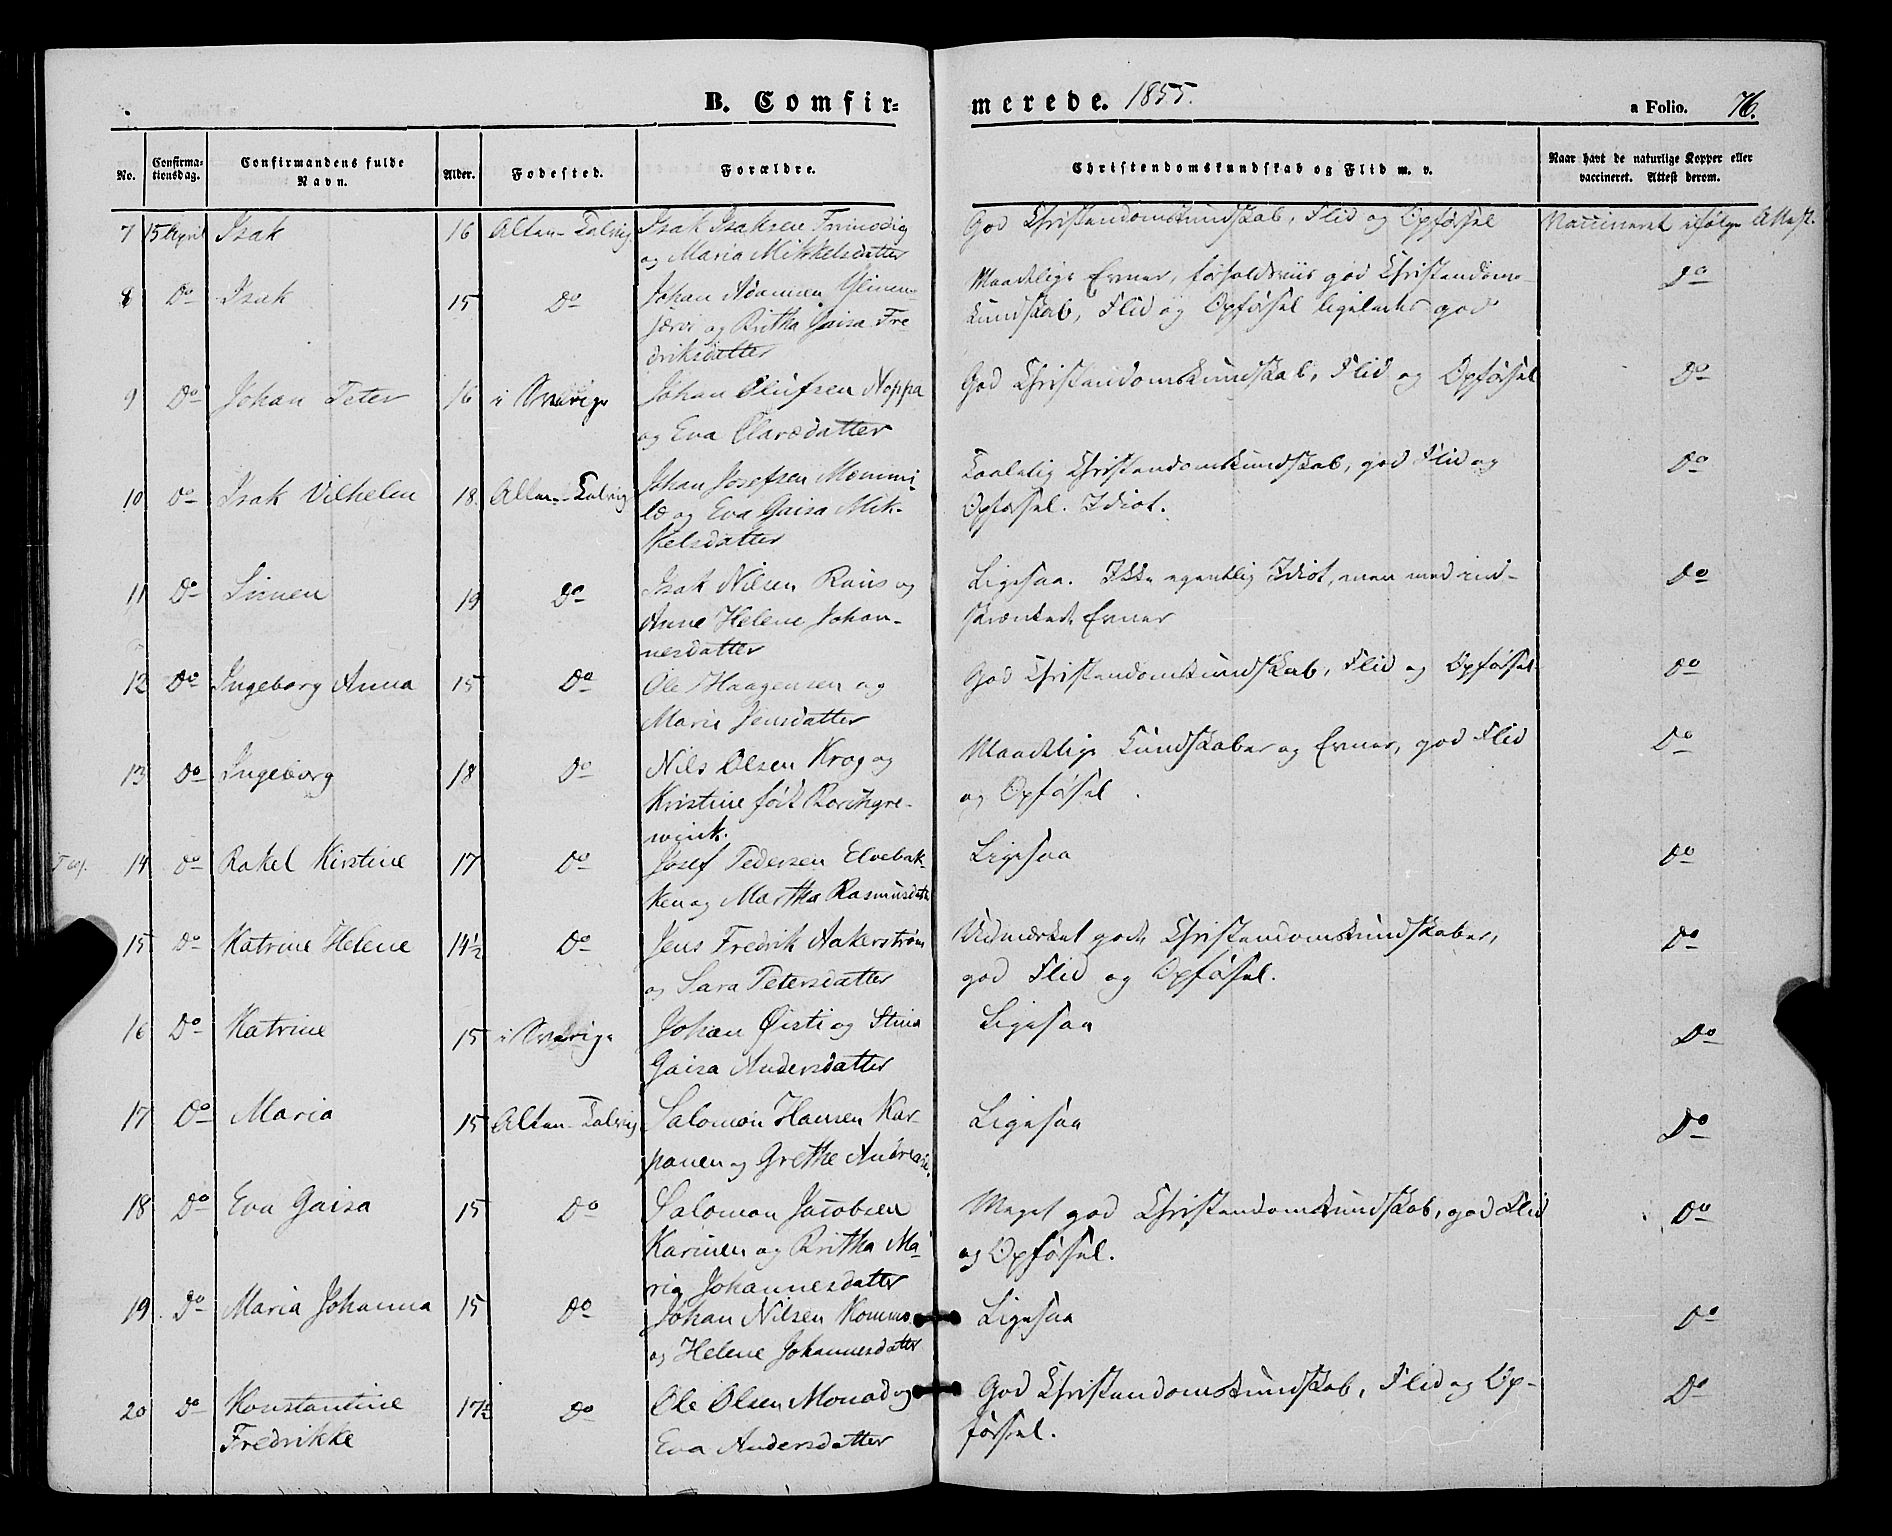 B. Comfir-
merede. 1855.
a Folio. 76.
No.
Confirma-
tionsdag.
Confirmandens fulde
Navn.
Alder.
Fodested.
Forældre.
Christendomskundskab og Flid m. v.
Naar havt de naturlige Kopper eller
vaccineret. Attest derom.
7 15 April Isak 16 Alten-Talvig Isak Isaksen Frimodig God Christendomskundskab, Flid og Opførsel Vaccineret ifølge Attest.
og Maria Mikkelsdatter
8 Do Isak 15 Do Johan Adamsen Ylinen- Maadelige Evner, forholdsviis god Christendoms- Do
jærvi og Britha Gaisa Fre- kundskab, Flid og Opførsel ligeledes god
driksdatter
9 Do Johan Peter 16 i Sverige Johan Olufsen Noppa God Christendomskundskab, Flid og Opførsel Do
og Eva Clarædatter
10 Do Isak Vilhelm 18 Alten-Talvig Johan Josefsen Mæmmi- Taalelig Christendomskundskab, god Flid og Do
læ og Eva Gaisa Mik- Opførsel. Idiot.
kelsdatter
11 Do Simen 19 Do Isak Nilsen Raus og Ligesaa. Ikke egentlig Idiot, men med ind- Do
Anne Helene Johan- skrænkede Evner
nesdatter
12 Do Ingeborg Anna 15 Do Ole Haagensen og God Christendomskundskab, Flid og Opførsel Do
Maria Jensdatter
13 Do Ingeborg 18 Do Nils Olsen Krog og Maadelige Kundskaber og Evner, god Flid Do
Kristine født Borchgre- og Opførsel.
winck.
14 Do Rakel Kirstine 17 Do Josef Pedersen Elvebak- Ligesaa Do
ken og Martha Rasmusdatr
15 Do Katrine Helene 14½ Do Jens Fredrik Aakerstrøm Udmærket gode Christendomskundskaber, Do
og Sara Petersdatter god Flid og Opførsel.
16 Do Katrine 15 i Sverige Johan Øisti og Stina Ligesaa Do
Gaisa Andersdatter
17 Do Maria 15 Alten-Talvig Salomon Hansen Kar- Ligesaa Do
panen og Grethe
18 Do Eva Gaisa 15 Do Salomon Jacobsen Meget god Christendomskundskab, god Flid Do
Karinen og Britha Ma- og Opførsel.
ria Johannesdatter
19 Do Maria Johanna 15 Do Johan Nilsen Kommo Ligesaa Do
og Helene Johannesdatter
20 Do Konstantine 17½ Do Ole Olsen Monad og God Christendomskundskab, Flid og Op- Do
Fredrikke Eva Andersdatter førsel.